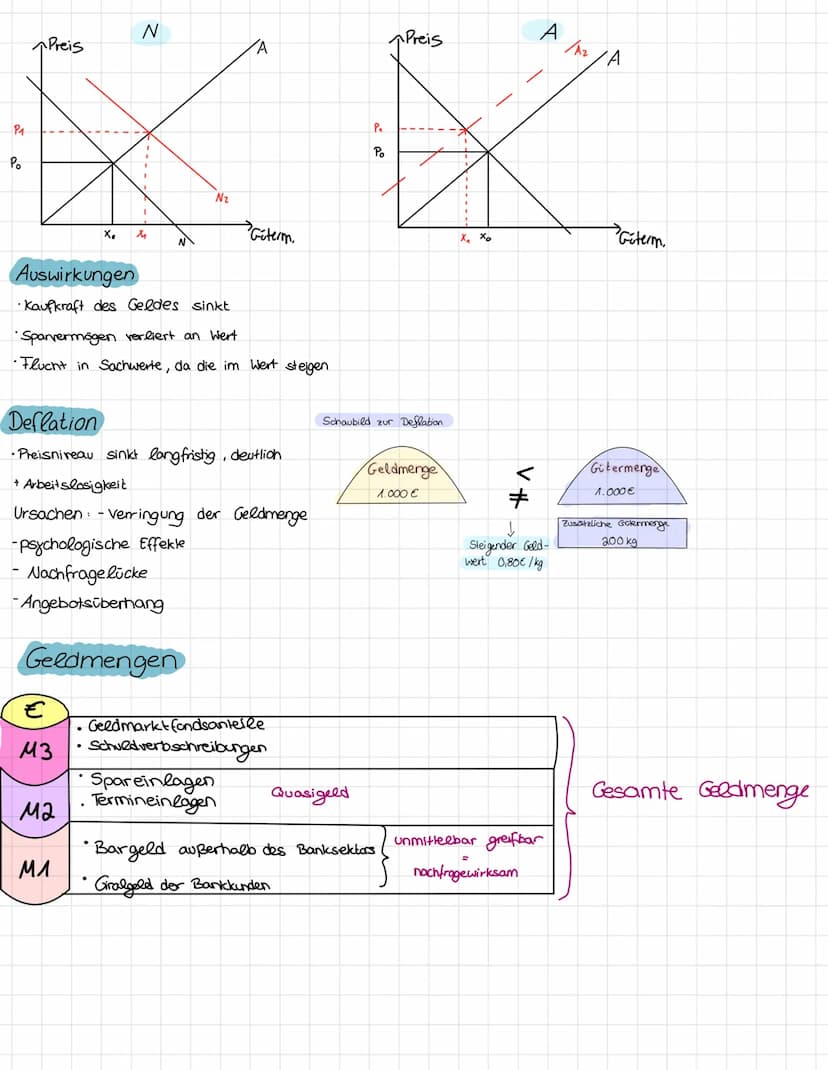 N
Preis
A
P1
P0
N2
x0
x1
N
Güterm.
A
Preis
A2
A
P1
P0
x1
x0
Güterm.
Auswirkungen
· Kaufkraft des Geldes sinkt
· Sparvermögen verliert an Wert
· Flucht in Sachwerte, da die im Wert steigen
Deflation
· Preisniveau sinkt langfristig, deutlich
+ Arbeitslosigkeit
Ursachen: - Verringung der Geldmenge
- psychologische Effekte
- Nachfragelücke
- Angebotsüberhang
Schaubild zur Deflation
Geldmenge
1.000 €
<
≠
↓
Steigender Geld-
wert 0,80€/kg
Gütermenge
1.000€
Zusätzliche Gütermenge
200 kg
Geldmengen
€
M3
· Geldmarktfondsanteile
· Schuldverbschreibungen
M2
· Spareinlagen
· Termineinlagen
Quasigeld
M1
· Bargeld außerhalb des Banksektors
· Giralgeld der Bankkunden
unmittelbar greifbar
=
nachfragewirksam
Gesamte Geldmenge